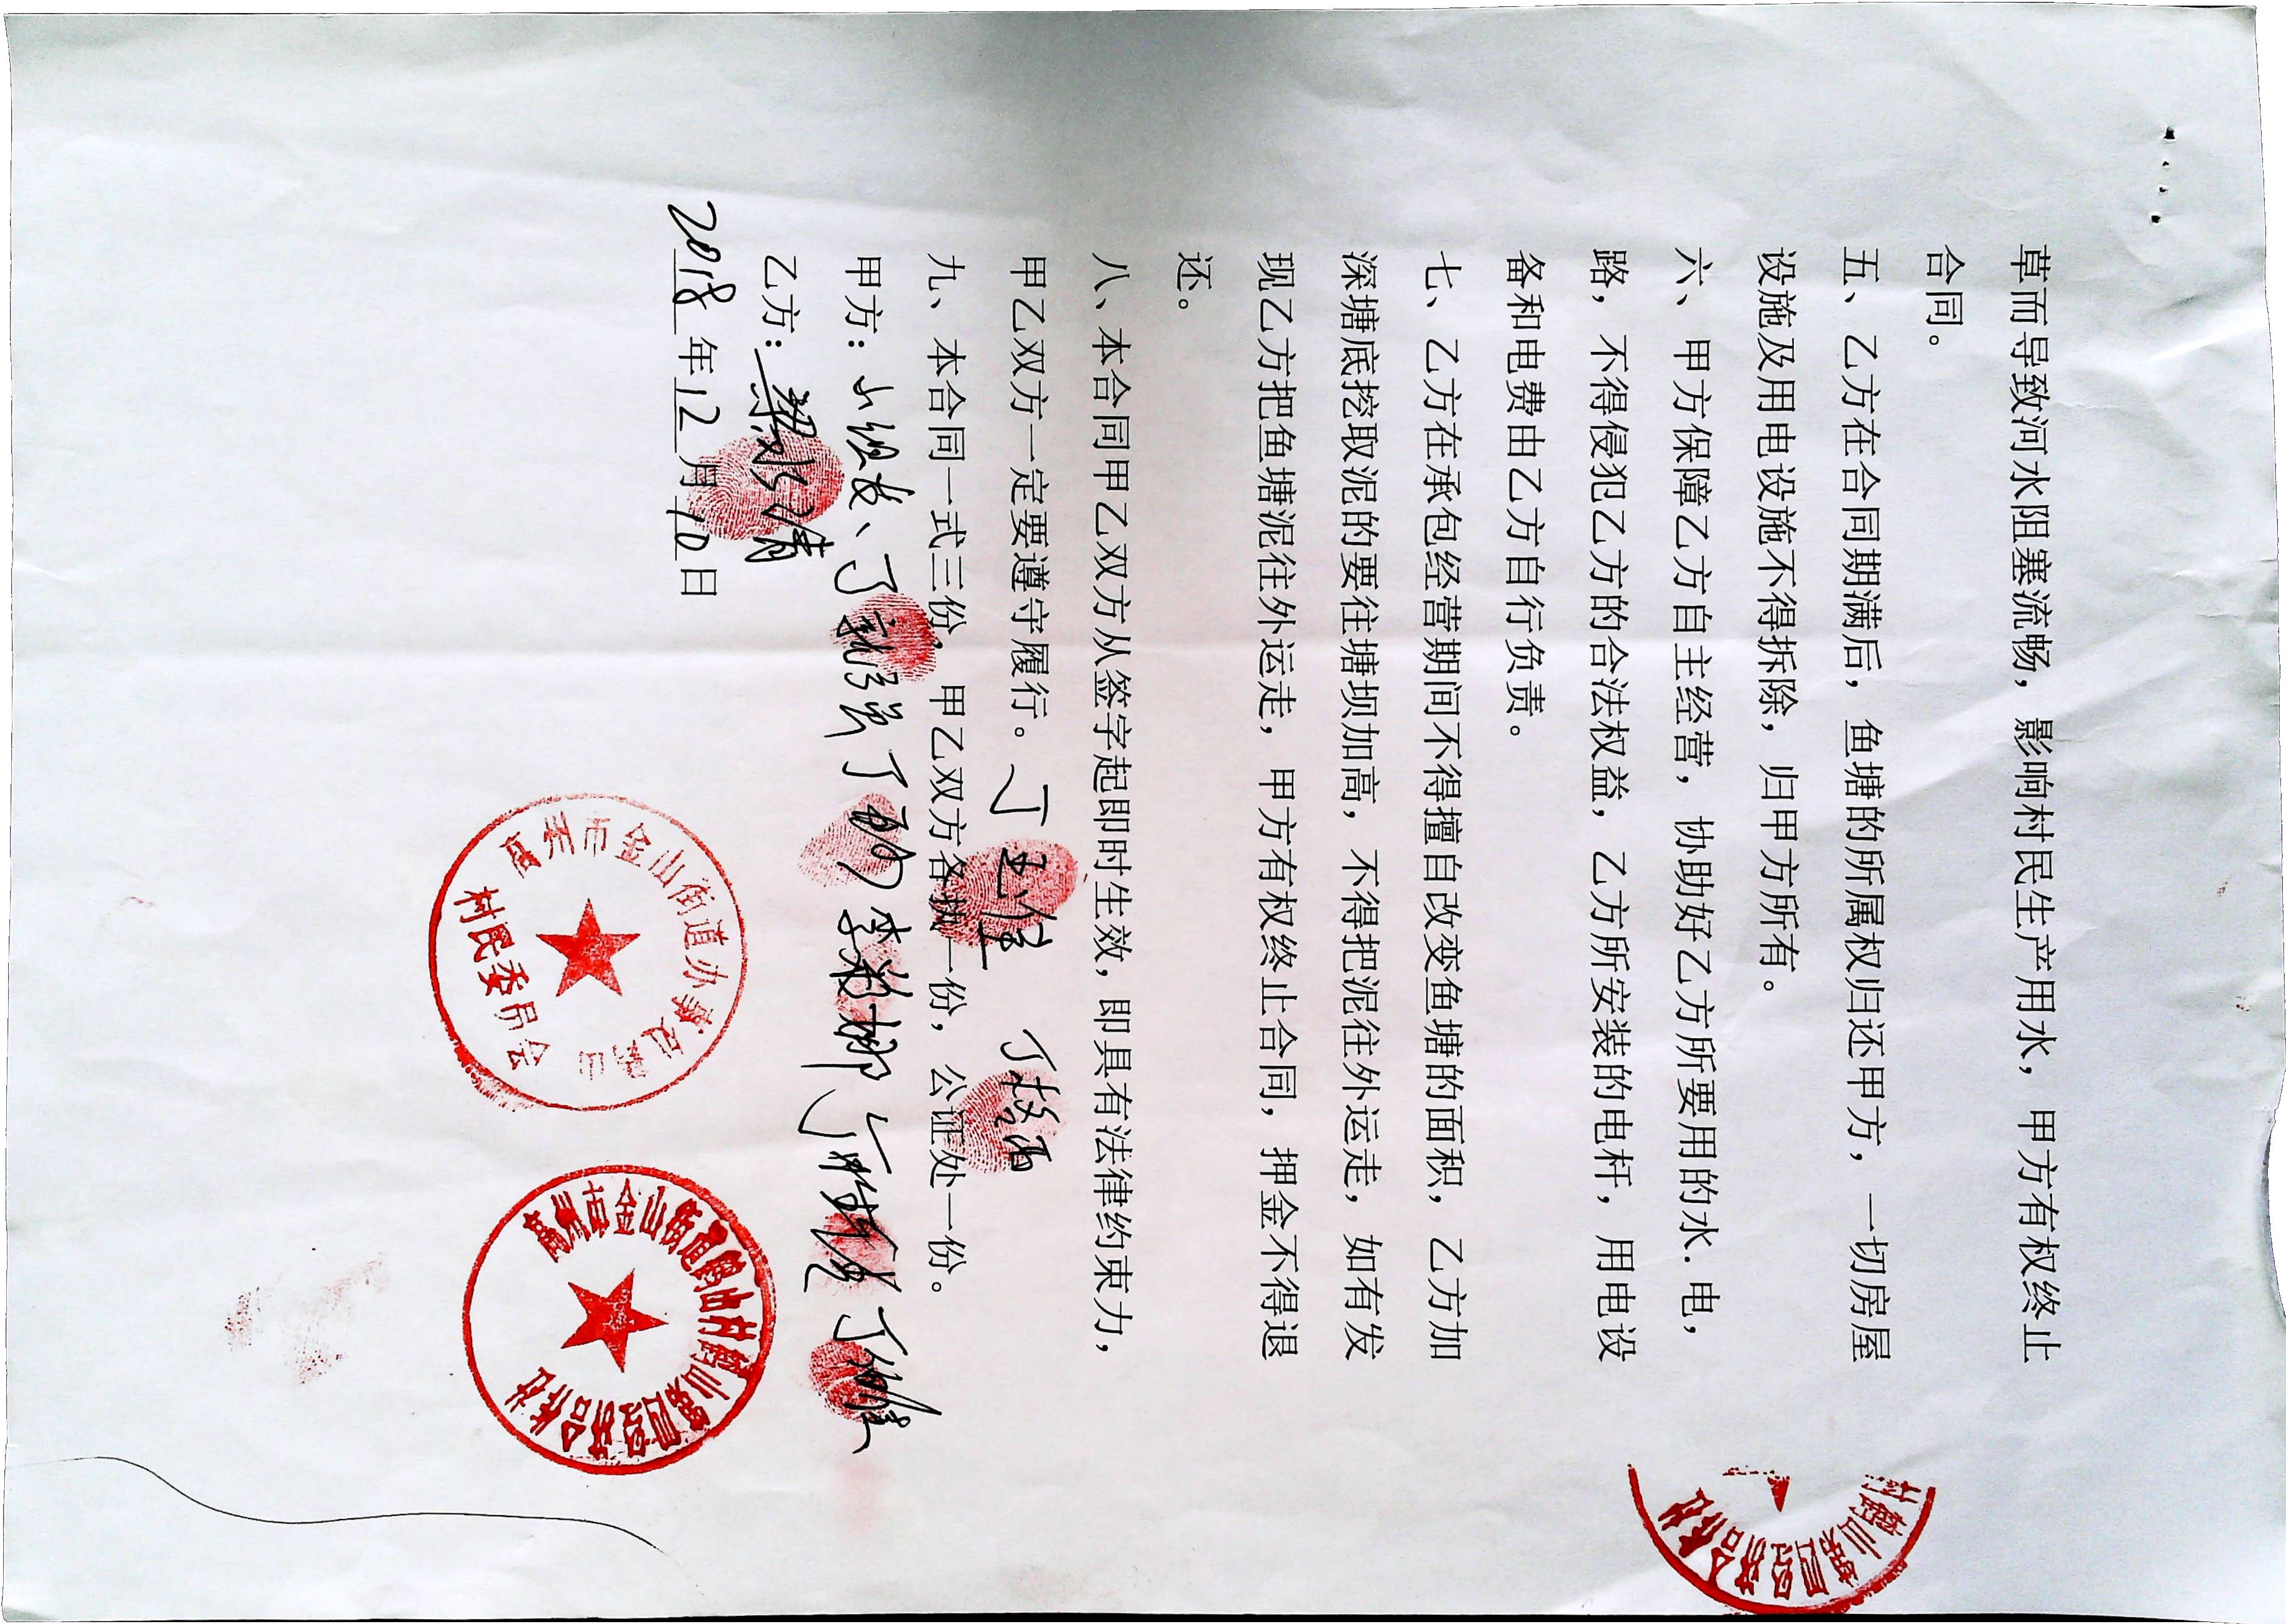 草而导致河水阻塞流畅，影响村民生产用水，甲方有权终止
合同。
五、乙方在合同期满后，鱼塘的所属权归还甲方，一切房屋
设施及用电设施不得拆除，归甲方所有。
六、甲方保障乙方自主经营，协助好乙方所要用的水.电，
路，不得侵犯乙方的合法权益，乙方所安装的电杆，用电设
备和电费由乙方自行负责。
七、乙方在承包经营期间不得擅自改变鱼塘的面积，乙方加
深塘底挖取泥的要往塘坝加高，不得把泥往外运走，如有发
现乙方把鱼塘泥往外运走，甲方有权终止合同，押金不得退
还。
八、本合同甲乙双方从签字起即时生效，即具有法律约束力，
甲乙双方一定要遵守履行。
九、本合同一式三份，甲乙双方各执一份，公证处一份。
甲方：小组长、丁
乙方：梁水清
2018年12月10日
高州市金山街道办事处
村民委员会
高州市金山街道 山村 山第四经济合作社
村 山第四经济合作社